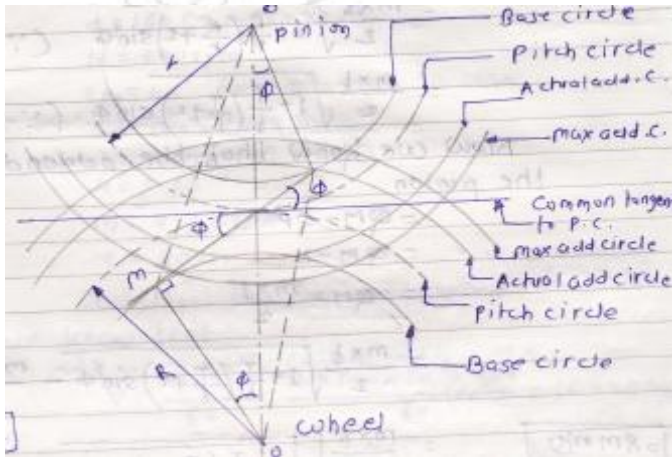 o
pinion
Base circle
Pitch circle
Actual add. C.
max add C.
r
Φ
Φ
Common tangen
to P.C.
Φ
max add circle
m
Actual add circle
Pitch circle
R
Base circle
Φ
wheel
o